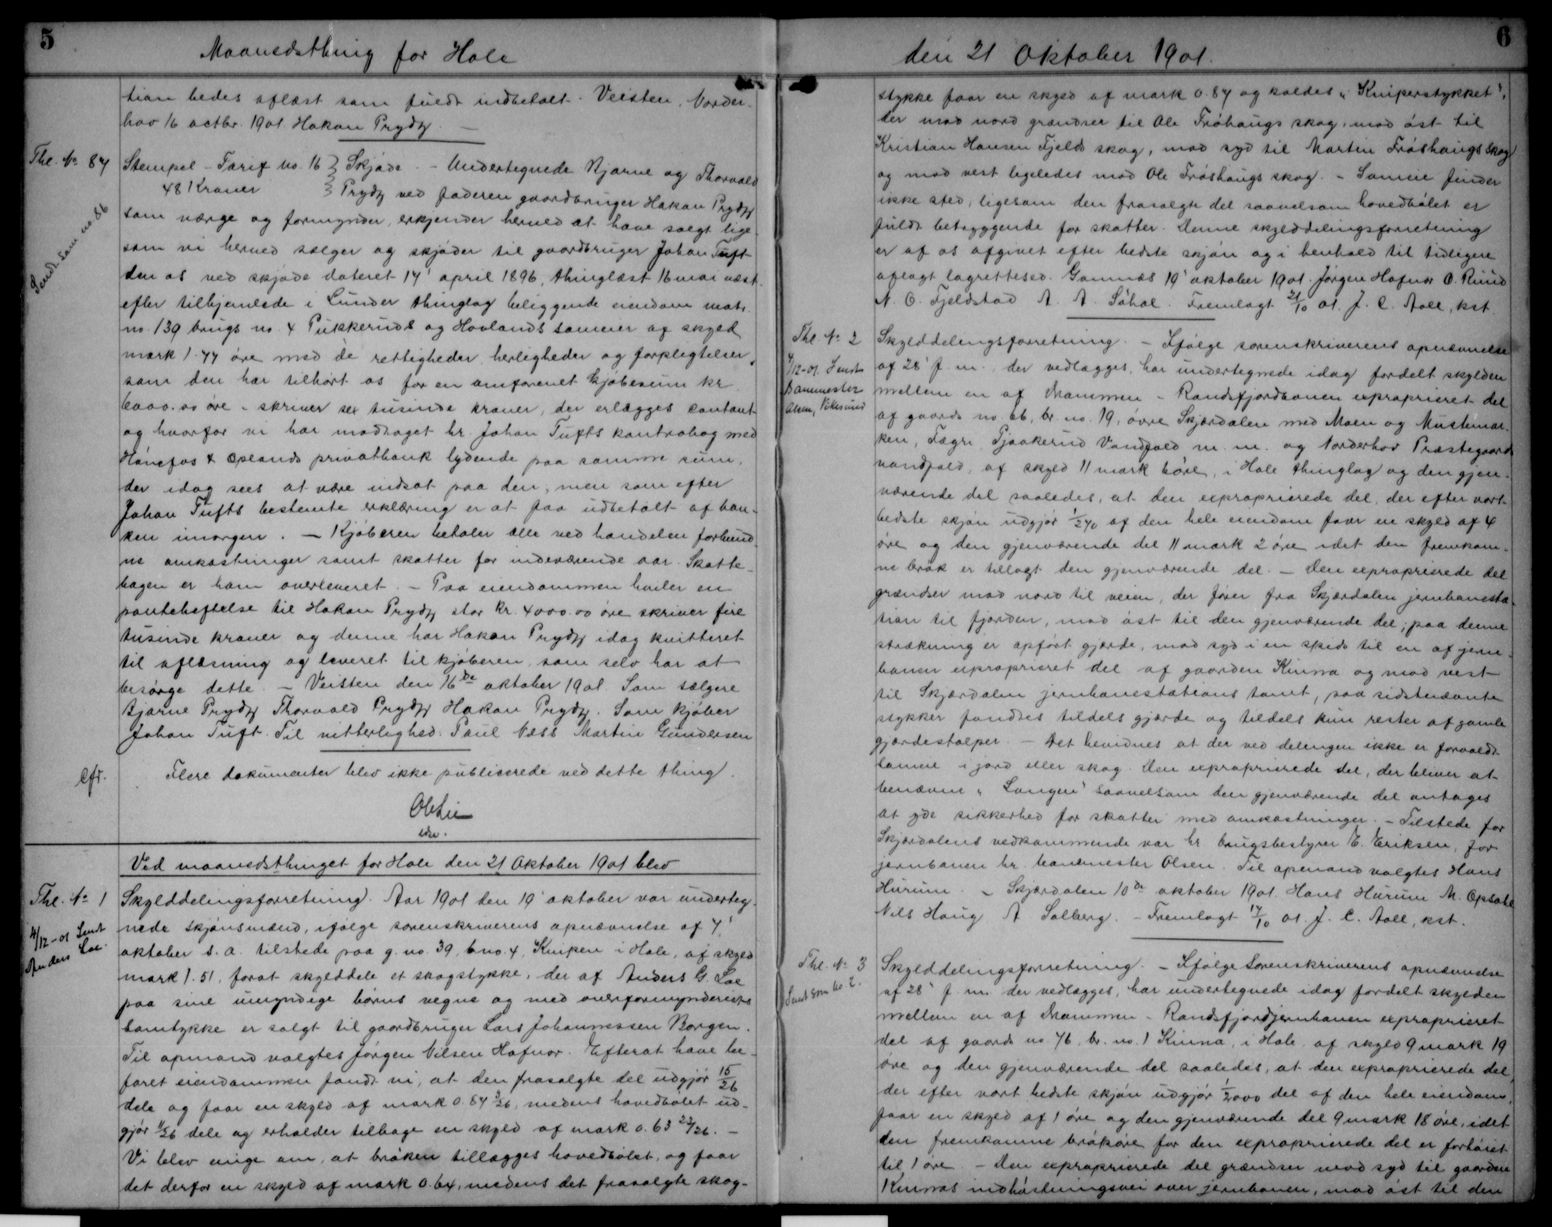 5
Maanedsthing for Hole
tion bedes aflæst som fuldt indbetalt. Veisten, Norder-
hov 16 octbr. 1901. Hakon Prydz.
Thl. № 84
Sendt som no. 86
Stempel-Tarif no. 16 } Skjøde. - Undertegnede Bjarne og Thorvald
48 Kroner } Prydz ved faderen gaardbruger Hakon Prydz
som værge og formynder, erkjender herved at have solgt lige-
som vi herved sælger og skjøder til gaardbruger Johan Tuft
den os ved skjøde dateret 14' april 1896, thinglæst 16 mai næst
efter tilhjemlede i Lunder thinglag beliggende eiendom matr.
no. 139 brugs no. 4 Pukkeruds og Hovlands sameier af skyld
mark 1.44 øre med de rettigheder, herligheder og forpligtelser,
som den har tilhørt os for en omforenet kjøbesum kr.
6000.00 øre - skriver sex tusinde kroner, der erlægges contant
og hvorfor vi har modtaget hr. Johan Tufts kontrabog med
Hønefos & oplands privatbank lydende paa samme sum,
der idag sees at være indsat paa den, men som efter
Johan Tufts bestemte erklæring er at faa udbetalt af ban-
ken imorgen. - Kjøberen betaler alle ved handelen forbund-
ne omkostninger samt skatter for indeværende aar. Skatte-
bogen er ham overleveret. - Paa eiendommen hviler en
panteheftelse til Hakon Prydz stor kr. 4000.00 øre skriver fire
tusinde kroner og denne har Hakon Prydz idag kvitteret
til aflæsning og leveret til kjøberen, som selv har at
besørge dette. - Veisten den 16de oktober 1901. Som sælgere
Bjarne Prydz Thorvald Prydz Hakon Prydz. Som kjøber
Johan Tuft. Til vitterlighed: Paul Næss Martin Gundersen
Cfr.
Flere dokumenter blev ikke publicerede ved dette thing.
Ved maanedsthinget for Hole den 21 Oktober 1901 blev
Thl. № 1
4/12-01 Sendt
Anders Loe.
Skylddelingsforretning. Aar 1901 den 19' oktober var underteg-
nede skjønsmænd, ifølge sorenskriverens opnævnelse af 7'
oktober s. a. tilstede paa g. no. 39, b. no. 4, Knipen i Hole, af skyld
mark 1.51, forat skylddele et skogstykke, der af Anders G. Loe
paa sine umyndige børns vegne og med overformynderiets
samtykke er solgt til gaardbruger Lars Johannessen Borgen.
Til opmand valgtes Jørgen Nilsen Hafnor. Efterat have be-
faret eiendommen fandt vi, at den frasolgte del udgjør 15/26
dele og faar en skyld af mark 0.84 3/26, medens hovedbølet ud-
gjør 11/26 dele og erholder tilbage en skyld af mark 0.63 23/26. -
Vi blev enige om, at brøken tillægges hovedbølet, og faar
det derfor en skyld af mark 0.64, medens det frasolgte skog-
6
den 21 Oktober 1901.
stykke faar en skyld af mark 0.84 og kaldes "Kniperstykket",
der mod nord grændser til Ole Frøhaugs skog, mod øst til
Kristian Hansen Fjelds skog, mod syd til Martin Frøshaugs skog
og mod vest ligeledes mod Ole Frøshaugs skog. - Sameie finder
ikke sted, ligesom den frasolgte del saavelsom hovedbølet er
fuldt betryggende for skatter. Denne skylddelingsforretning
er af os afgivet efter bedste skjøn og i henhold til tidligere
aflagt lagrettesed. Gomnæs 19' oktober 1901. Jørgen Hafnor O. Ruud
N. O. Fjeldstad A. A. Søhol. Fremlagt 21/10 01. J. C. Aall, kst.
Thl. № 2
4/12-01. Sendt
Banemester
Olsen, Vikersund
Skylddelingsforretning. - Ifølge sorenskriverens opnævnelse
af 28' f. m. der vedlægges, har undertegnede idag fordelt skylden
mellem en af Drammen - Randsfjordbanen exproprieret del
af gaards no. 66, br. no. 19, øvre Skjærdalen med Moen og Mustemar-
ken, Fægri Tjøkkerud Vandfald m. m. og Norderhov Præstegaards
vandfald, af skyld 11 mark 6 øre, i Hole thinglag og den gjen-
værende del saaledes, at den exproprierede del, der efter vort
bedste skjøn udgjør 1/270 af den hele eiendom faar en skyld af 4
øre og den gjenværende del 11 mark 2 øre idet den fremkom-
ne brøk er tillagt den gjenværende del. - Den exproprierede del
grændser mod nord til veien, der fører fra Skjærdalen jernbanesta-
tion til fjorden, mod øst til den gjenværende del, paa denne
strækning er opført gjærde, mod syd i en spids til en af jern-
banen exproprieret del af gaarden Kinna og mod vest
til Skjærdalen jernbanestations tomt, paa sidstnævnte
stykker fandtes tildels gjærde og tildels kun rester af gamle
gjærdestolper. - Det bevidnes at der ved delingen ikke er forvoldt
sameie i jord eller skog. Den exproprierede del, der bliver at
benævne "Lungen" saavelsom den gjenværende del antages
at yde sikkerhed for skatter med omkostninger. - Tilstede for
Skjærdalens vedkommende var hr. brugsbestyrer E. Eriksen, for
jernbanen hr. banemester Olsen. Til opmand valgtes Hans
Hurum. - Skjærdalen 10de oktober 1901. Hans Hurum M. Opsahl
Nils Haug A. Solberg. - Fremlagt 14/10 01. J. C. Aall, kst.
Thl. № 3
Sendt som no. 2.
Skylddelingsforretning. - Ifølge Sorenskriverens opnævnelse
af 28' f. m. der vedlægges, har undertegnede idag fordelt skylden
mellem en af Drammen - Randsfjordjernbanen exproprieret
del af gaards no. 76 br. no. 1 Kinna, i Hole, af skyld 9 mark 19
øre og den gjenværende del saaledes, at den exproprierede del,
der efter vort bedste skjøn udgjør 1/2000 del af den hele eiendom,
faar en skyld af 1 øre og den gjenværende del 9 mark 18 øre, idet
den fremkomne brøkøre for den exproprierede del er forhøiet
til 1 øre. - Den exproprierede del grændser mod syd til gaarden
Kinnas indhøstningsvei over jernbanen, mod øst til den